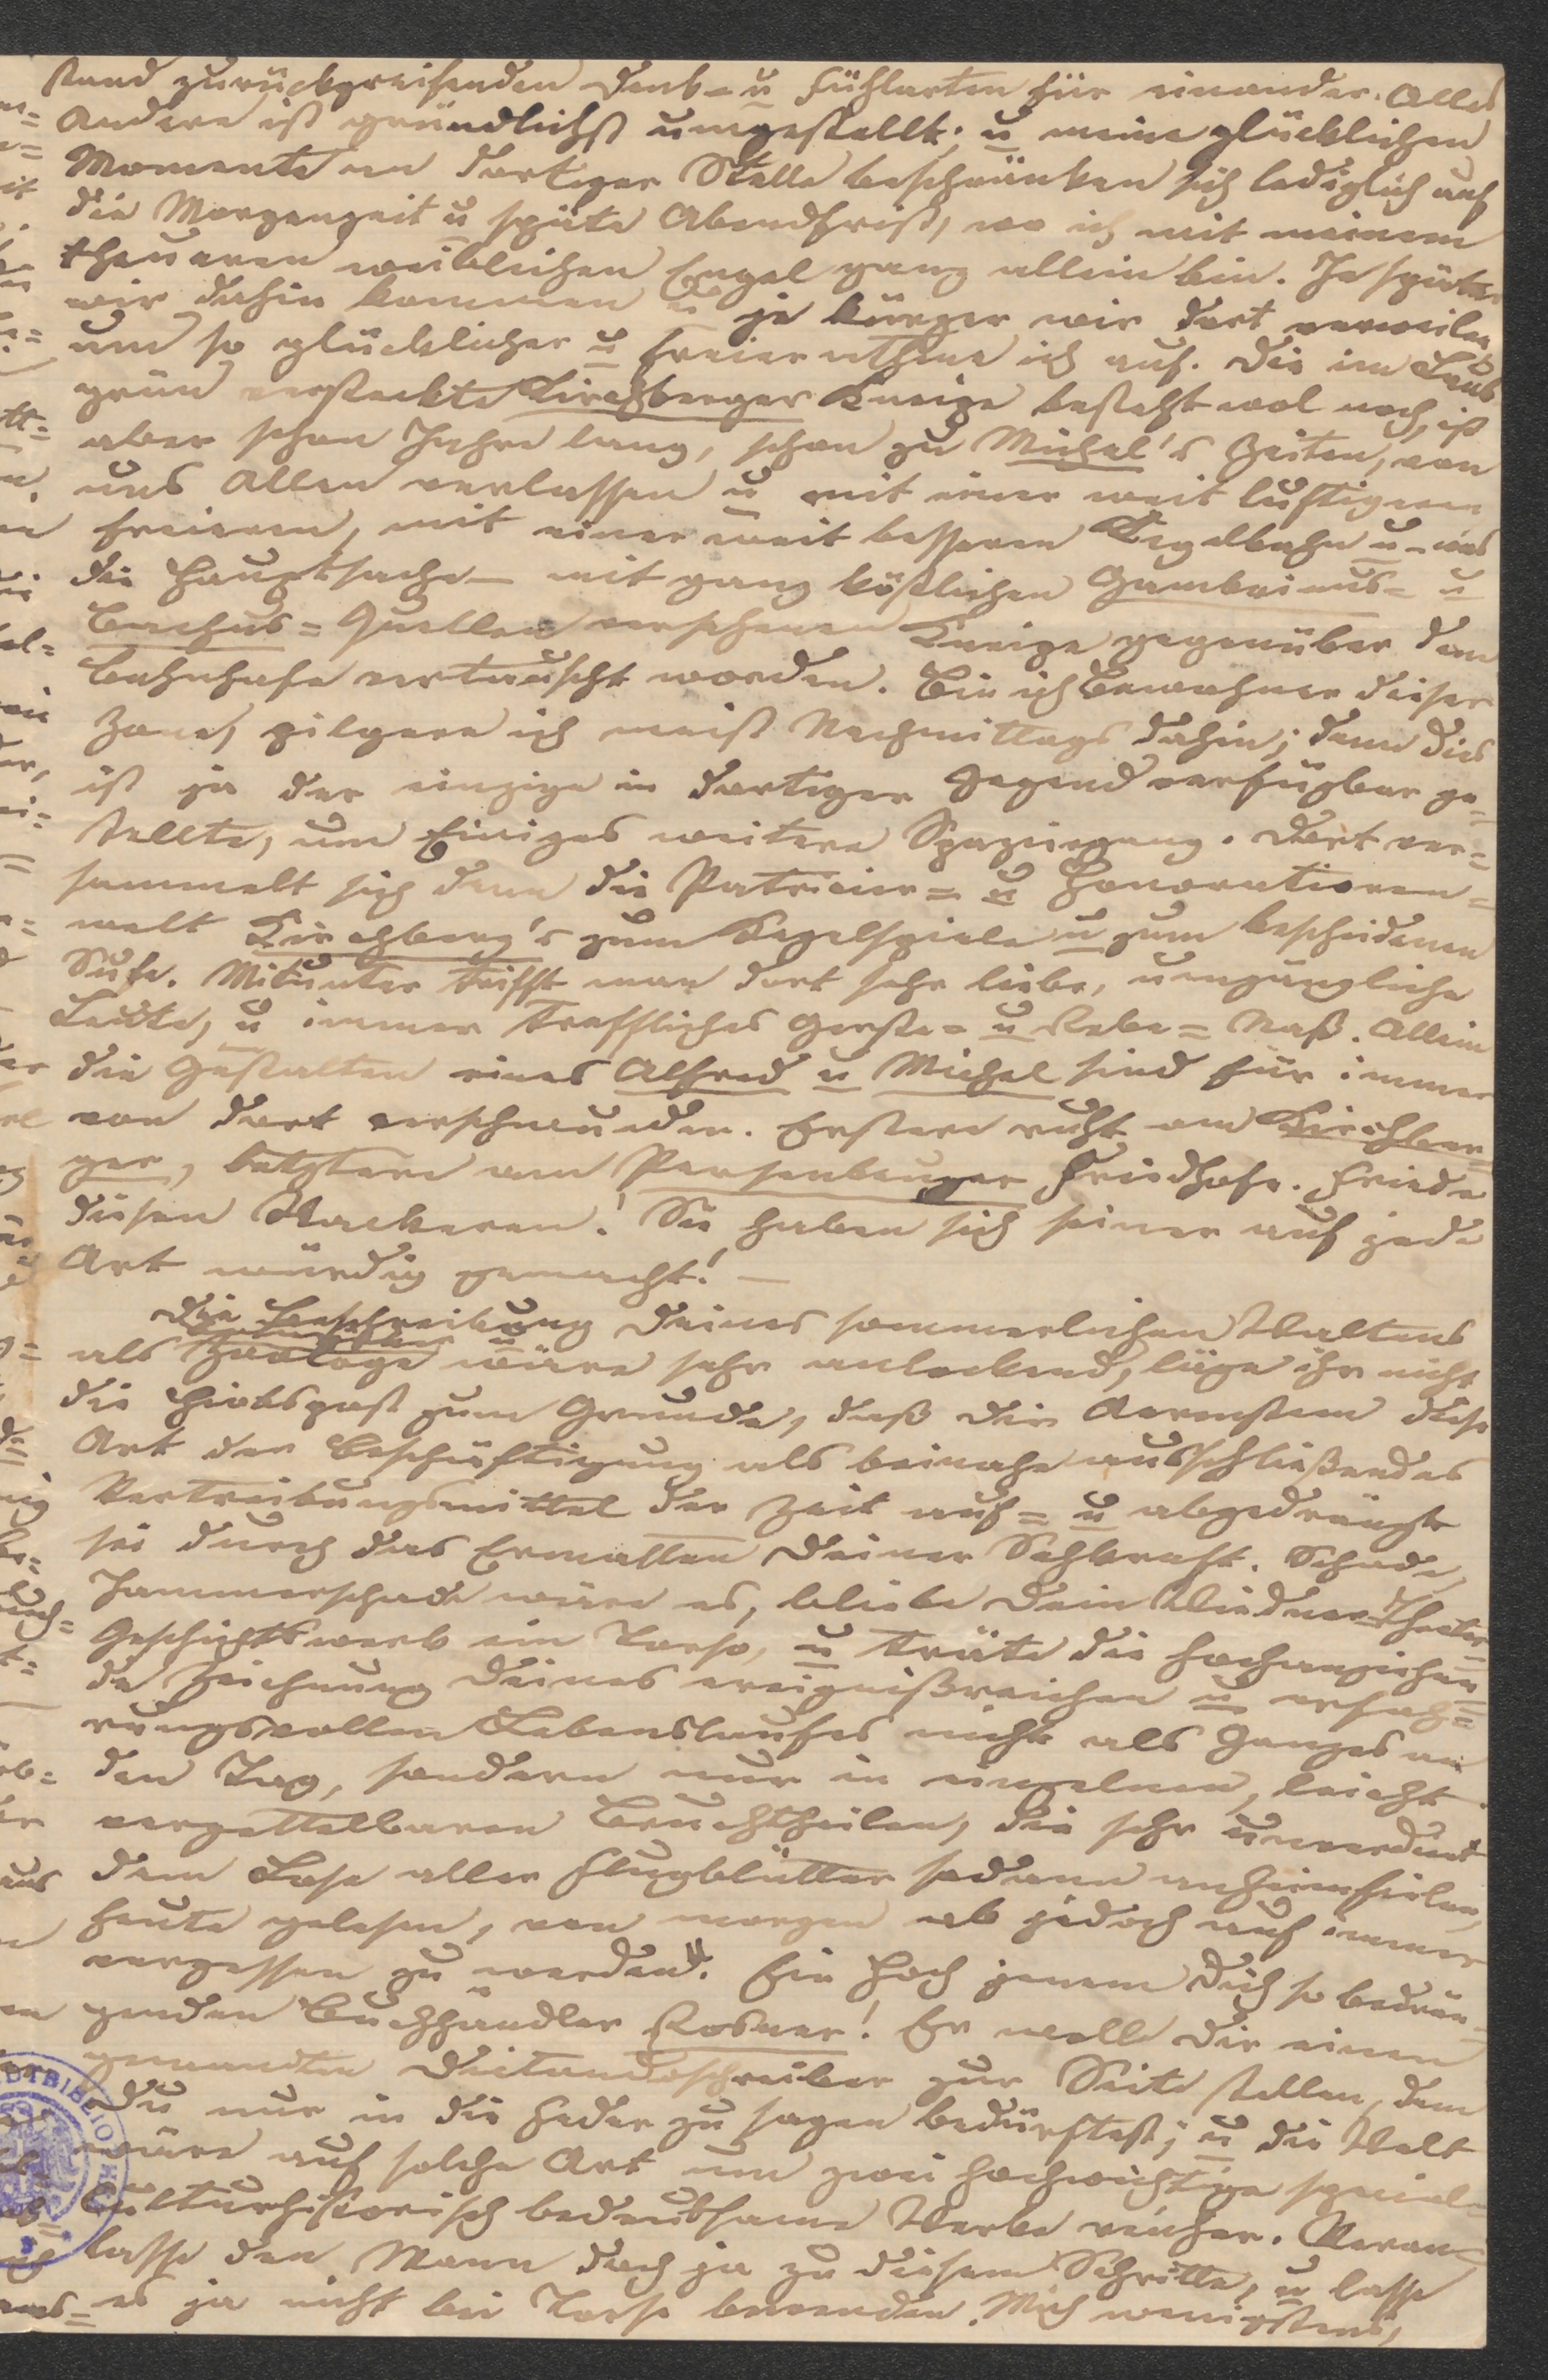 stand zurückgreifenden Denk- u Fühlarten für einander. Alles
Andere ist gründlichst umgestellt; u meine glücklichen
Momente an dortiger Stelle beschränken sich lediglich auf
die Morgenzeit u späte Abendfrist, wo ich mit meinem
theueren weiblichen Engel ganz allein bin. Je später
wir dahin kommen u je kürzer wir dort verweilen,
um so glücklicher u freier athme ich auf. Die im Laub
grün versteckte Kirchberger Kneipe besteht wol noch, ist
aber schon Jahre lang, schon zu Michel's Zeiten, von
uns Allen verlassen u mit einer weit luftigeren
freieren, mit einer weit besseren Kegelbahn u - was
die Hauptsache - mit ganz köstlichen Gambrinus= u
Bachus=Quellen versehenen Kneipe gegenüber dem
Bahnhofe vertauscht worden. Bin ich Bewohner dieser
Zone, pilgere ich meist Nachmittags dahin; denn dies
ist ja der einzige in dortiger Gegend verfügbar ge=
stellte, um Einiges weitere Spaziergang. Dort ver=
sammelt sich dann die Patricier= u Honoratioren=
welt Kirchberg's zum Kegelspiele u zum bescheidenen
Sufe. Mitunter trifft man dort sehr liebe, umgängliche
Leute, u immer treffliches Gerste- u Rebe=Naß. Allein
die Gestalten eines Alfred u Michel sind für immer
von dort verschwunden. Erstere ruht am Kirchber=
ger, letztere am Persenbeuger Friedhofe. Friede
diesen Wackeren! Sie haben sich seiner auf jede
Art würdig gemacht! —
Die Beschreibung Deines sommerlichen Waltens
als Zoologe wäre sehr anlockend, läge ihr nicht
die Hiobspost zum Grunde, daß Dir Aermstem diese
Art der Beschäftigung als beinahe ausschließendes
Vertreibungsmittel der Zeit auf= u abgedrängt
sei durch das Ermatten Deiner Sehkraft. Schade,
Jammerschade wäre es, bliebe Dein Wiedner Theater=
Geschichtswerk ein Torso, u träte die hochanziehen=
de Zeichnung Deines ereignißreichen u erfah=
rungsvollen Lebenslaufes nicht als Ganzes an
den Tag, sondern nur in einzelnen, leicht
verzettelbaren Bruchtheilen, die sehr unverdient
dem Lose aller Flugblätter sodann anheimfielen,
heute gelesen, von morgen ab jedoch auf immer
vergessen zu werden. Ein Hoch jenem Dich so bedrän=
genden Buchhändler Rosner! Er wolle Dir einen
gewandten Dictandoschreiber zur Seite stellen, dem
Du nur in die Feder zu sagen bedürftest; u die Welt
wäre auf solche Art um zwei hochwichtige special=
culturhistorisch bedeutsame Werke reicher. Veran=
lasse den Mann doch ja zu diesem Schritte, u lasse
es ja nicht bei Torso bewenden. Mich wenigstens,